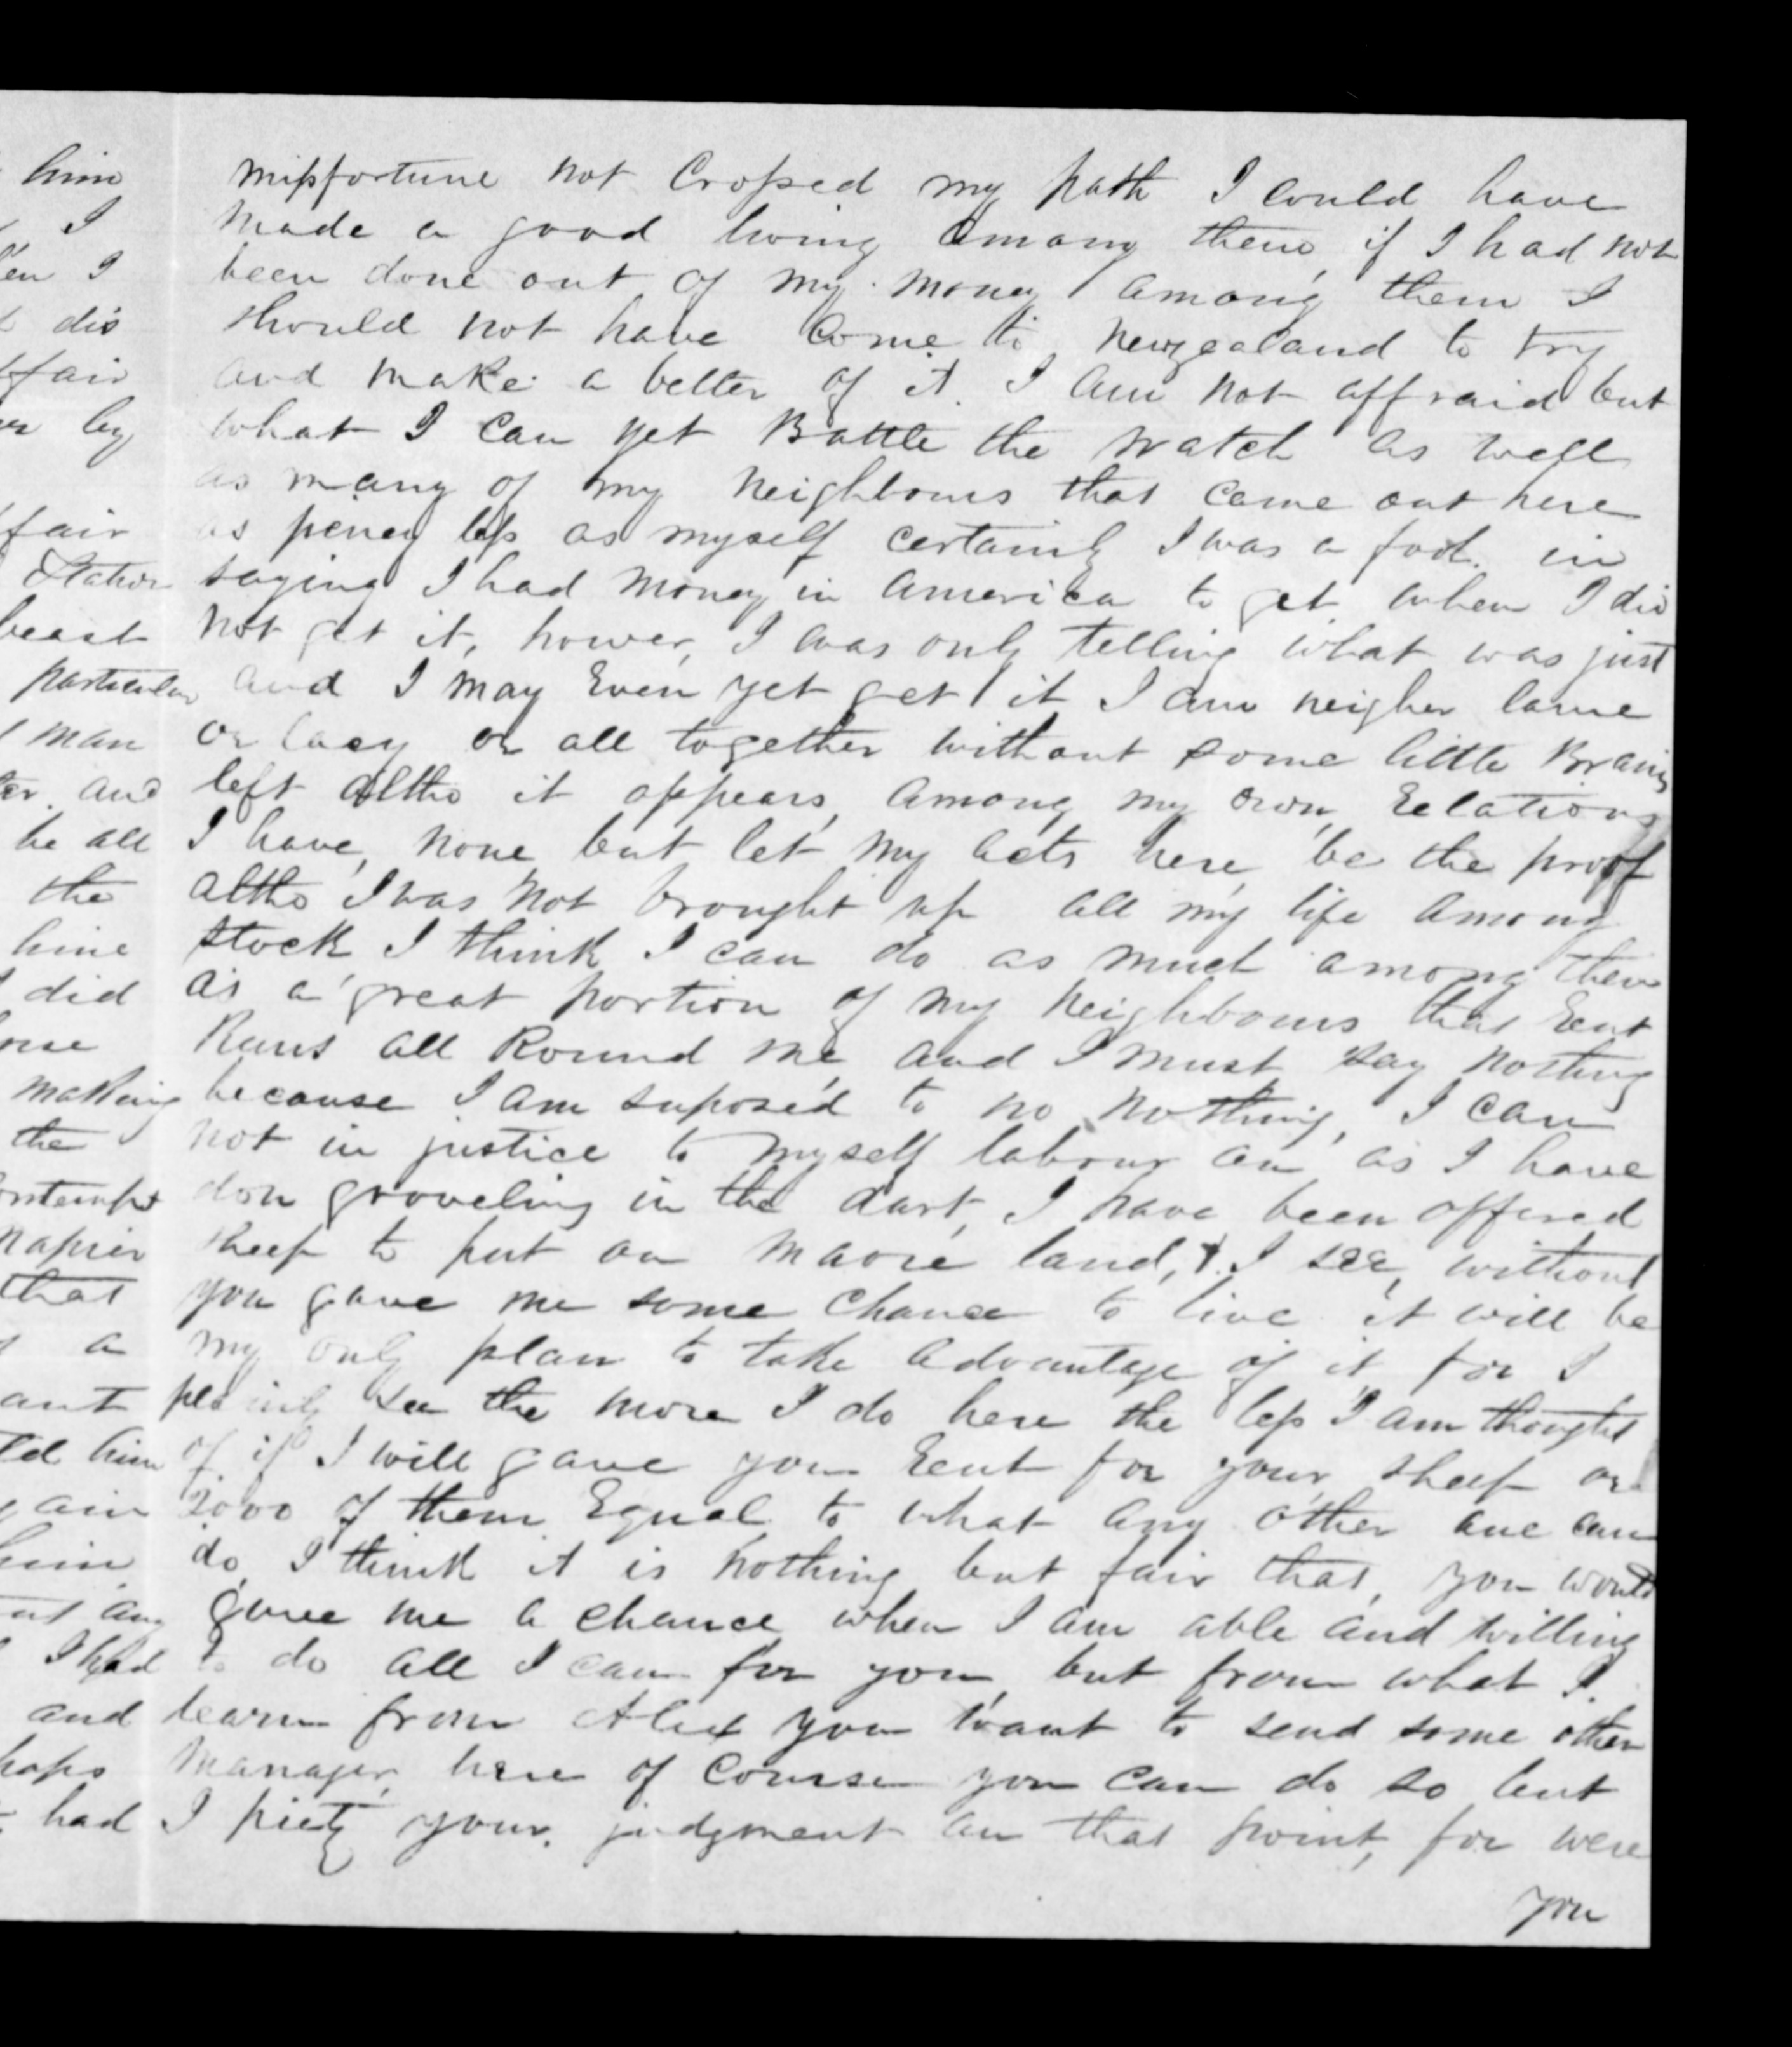 him
I
en I
dis
ffair
er by
ffair
Station
beast
particular
man
ter and
be all
the
hine
did
orse
making
the
ontempt
napier
that
a
ant
ld him
gain
him
ut any
I had
and
haps
had
missfortune not Crossed my path I could have
made a good living among them, if I had not
been done out of my money among them I
should not have Come to newzealand to try
and make a better of it. I am not affraid but
what I can yet Battle the watch as well
as many of my neighbours that came out here
as peney less as myself certainly I was a fool in
saying I had money in america to get when I did
not get it, hower, I was only telling what was just
and I may Even yet get it I am neigher lame
or lacy or all together without some little Brains
left altho it appears, among my own, Relations
I have, none but let my acts here, be the proof
altho I was not brought up all my life among
stock I think I can do as much among them
as a great portion of my neighbours that Rent
Runs all Round me and I must say nothing
because I am suposed to no nothing, I can
not in justice to myself labour an as I have
don groveling in the dark, I have been offered
sheep to put on maorie land, & I see, without
you gave me some chance to live it will be
my only plan to take advantage of it for I
plainly see the more I do here the less I am thought
of if I will gave you Rent for your sheep or
2000 of them Equal to what any other ane can
do I think it is nothing but fair that, you would
gave me a chance when I am able and willing
to do all I can for you, but from what I
learn from Alex you want to send some other
manager, here of Course you can do so but
I piety your judgment an that point, for were
you